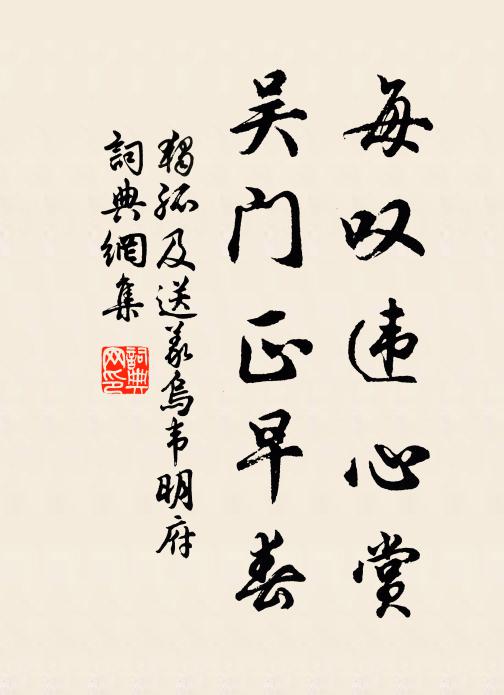 每叹违心赏
吴门正早春
独孤及送义乌韦明府
词典網集
詞典网印